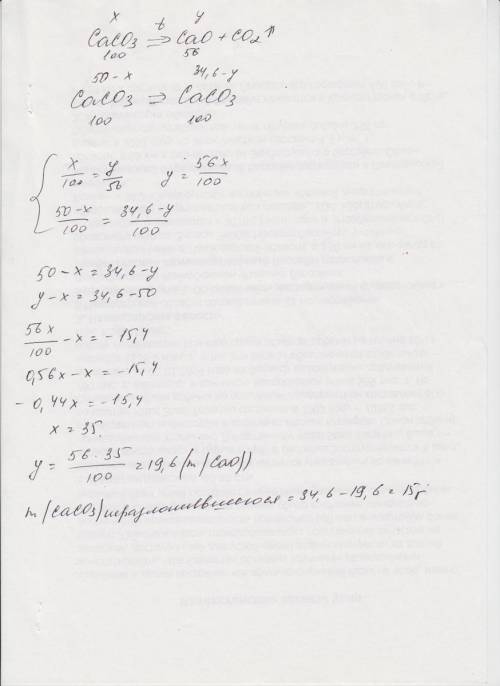 x t y
CaCO3 ⇒ CaO + CO2↑
100 56
50-x 34,6-y
CaCO3 ⇒ CaCO3
100 100
x/100 = y/56 y = 56x/100
50-x/100 = 34,6-y/100
50-x = 34,6-y
y-x = 34,6-50
56x/100 - x = -15,4
0,56x - x = -15,4
- 0,44x = -15,4
x = 35.
y = 56·35/100 = 19,6 (m(CaO))
m(CaCO3) неразложившегося = 34,6-19,6 = 15г